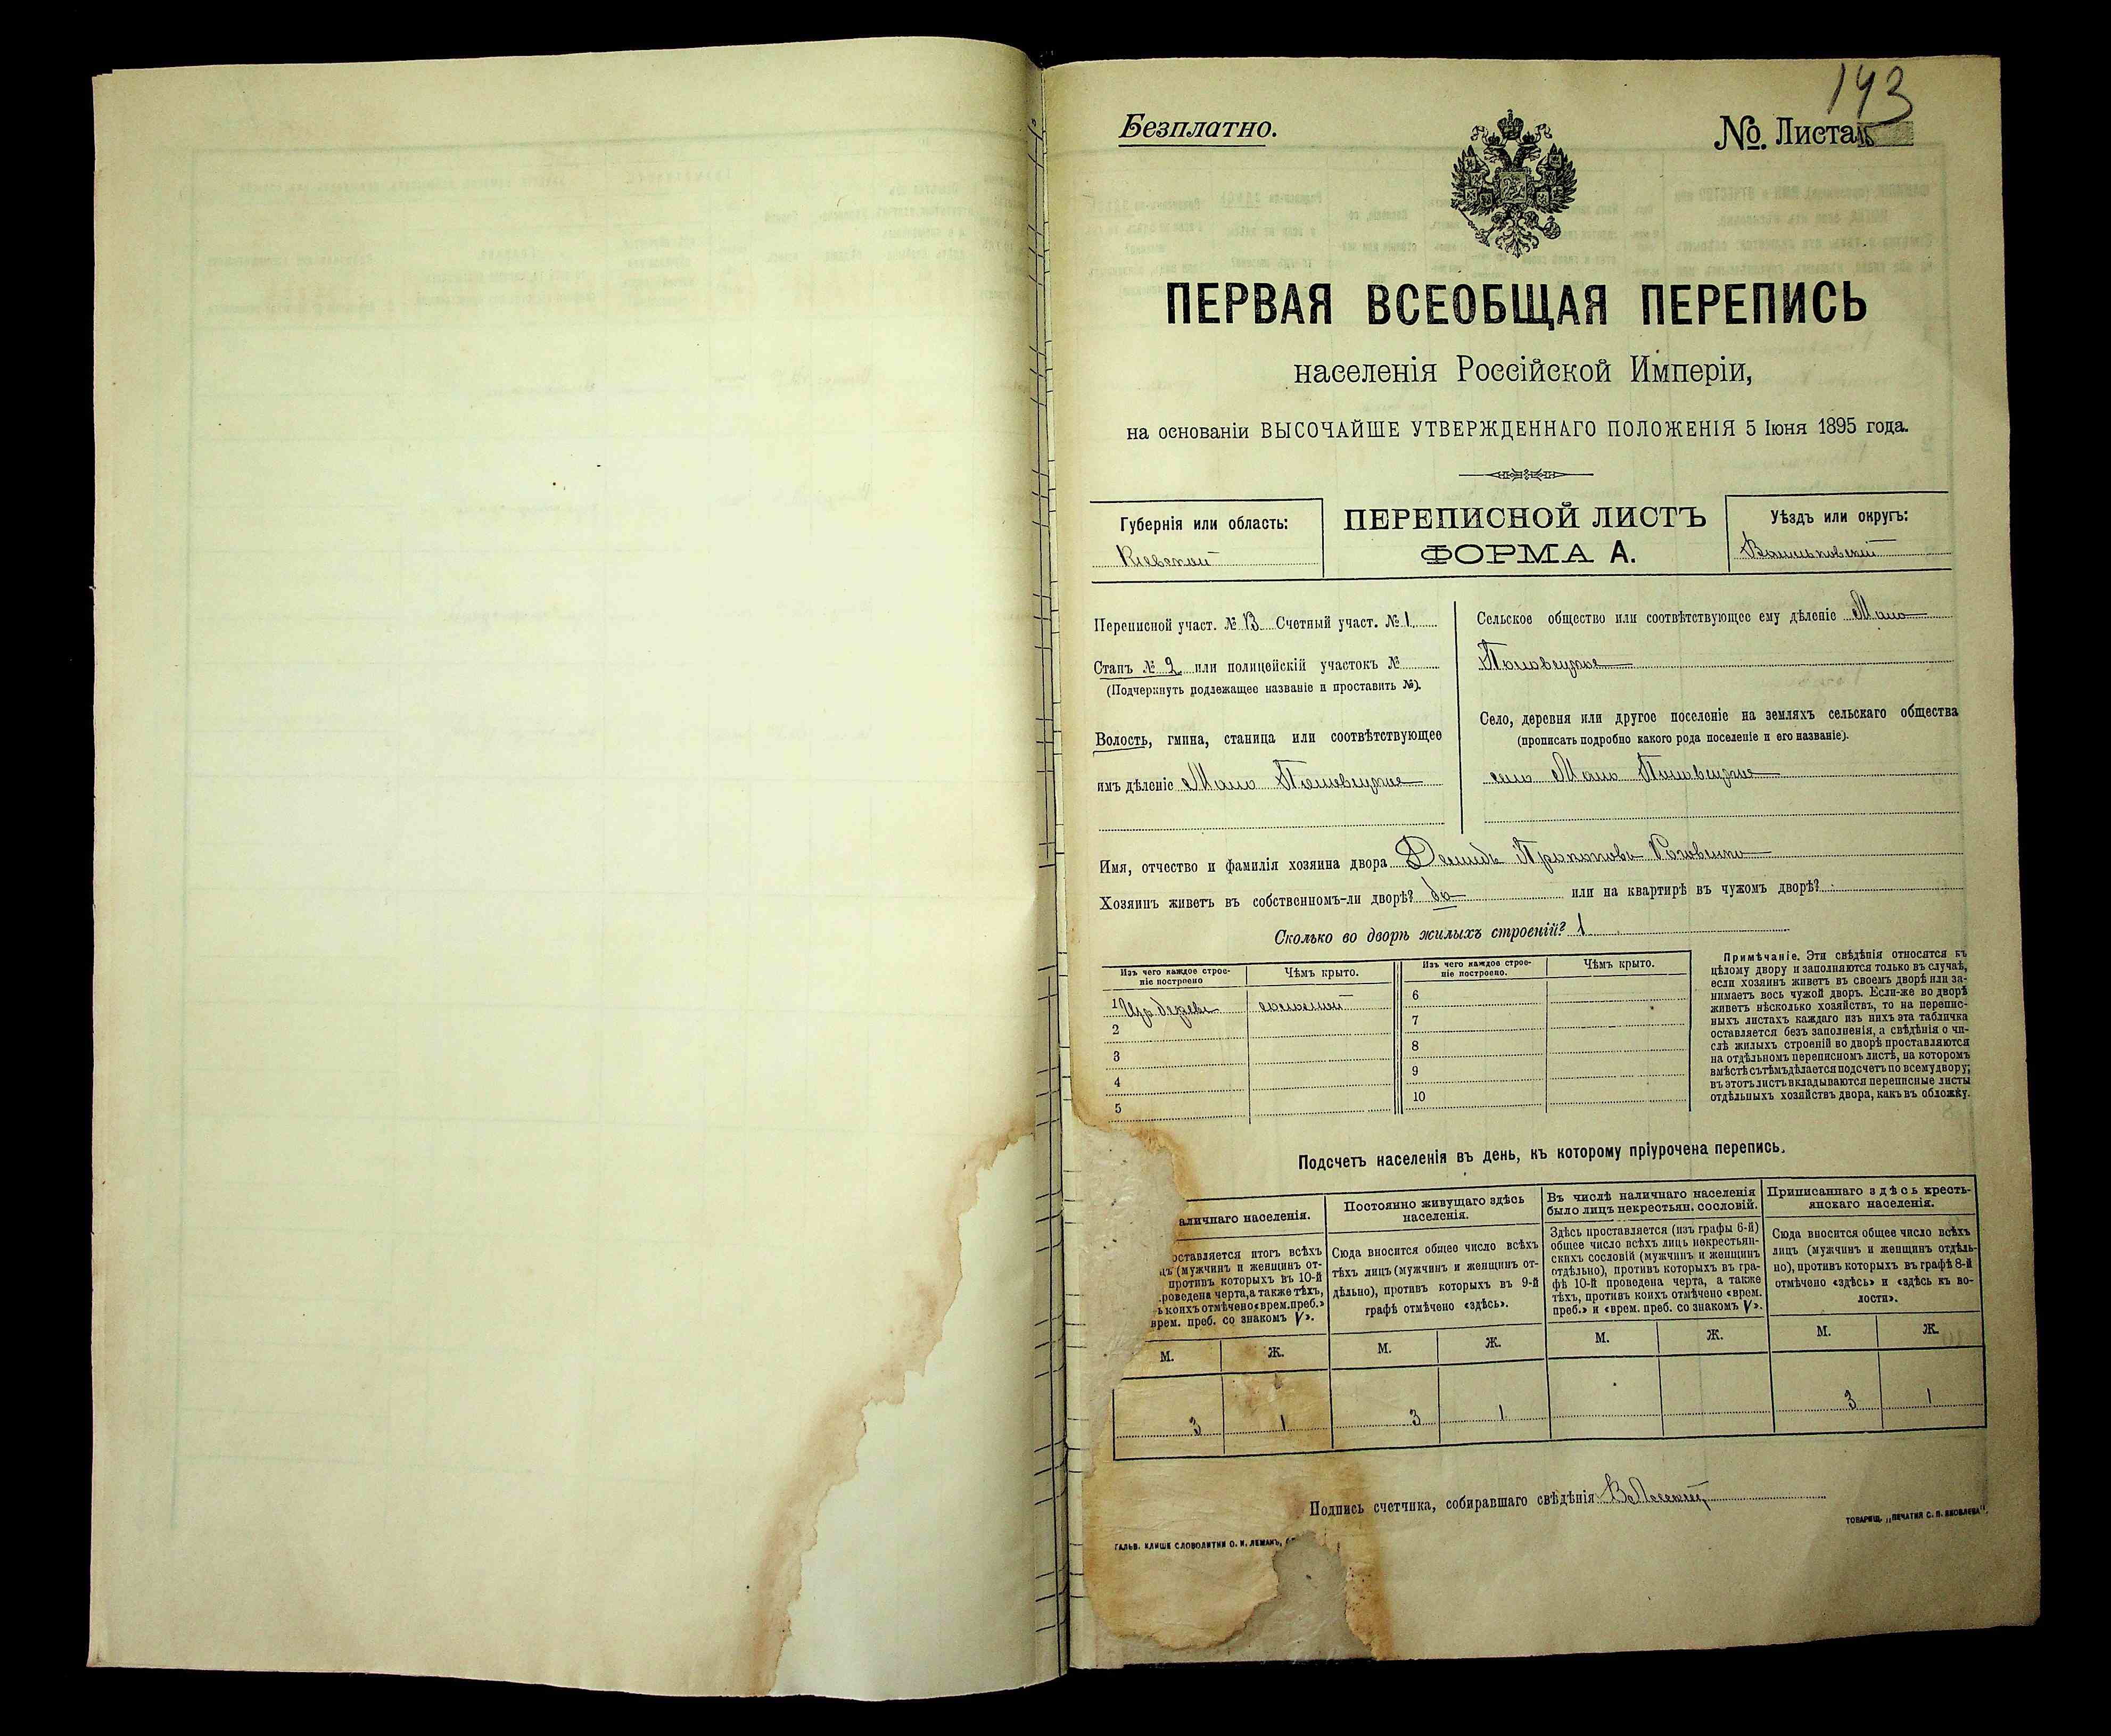 143
Безплатно.
№. Листа
ПЕРВАЯ ВСЕОБЩАЯ ПЕРЕПИСЬ
населенія Россійской Имперіи,
на основаніи ВЫСОЧАЙШЕ УТВЕРЖДЕННАГО ПОЛОЖЕНІЯ 5 Іюня 1895 года.
Губернія или область:
Кіевской
ПЕРЕПИСНОЙ ЛИСТЪ
ФОРМА А.
Уѣздъ или округъ:
Васильковскій
Переписной участ. № 13 Счетный участ. № 1
Станъ № 2 или полицейскій участокъ №
(Подчеркнуть подлежащее названіе и проставить №).
Волость, гмина, станица или соотвѣтствующее
имъ дѣленіе Мало Половецкое
Сельское общество или соотвѣтствующее ему дѣленіе Мало
Половецкое
Село, деревня или другое поселеніе на земляхъ сельскаго общества
(прописать подробно какого рода поселеніе и его названіе).
село Мало Половецкое
Имя, отчество и фамилія хозяина двора Демидъ
Хозяинъ живетъ въ собственномъ-ли дворѣ? да или на квартирѣ въ чужомъ дворѣ?
Сколько во дворѣ жилыхъ строеній? 1
Изъ чего каждое строе-
ніе построено
Чѣмъ крыто.
Изъ чего каждое строе-
ніе построено.
Чѣмъ крыто.
1 Изъ дерева соломой
2
3
4
5
6
7
8
9
10
Примѣчаніе. Эти свѣдѣнія относятся къ
цѣлому двору и заполняются только въ случаѣ,
если хозяинъ живетъ въ своемъ дворѣ или за-
нимаетъ весь чужой дворъ. Если-же во дворѣ
живетъ нѣсколько хозяйствъ, то на перепис-
ныхъ листахъ каждаго изъ нихъ эта табличка
оставляется безъ заполненія, а свѣдѣнія о чи-
слѣ жилыхъ строеній во дворѣ проставляются
на отдѣльномъ переписномъ листѣ, на которомъ
вмѣстѣ съ тѣмъ дѣлается подсчетъ по всему двору;
въ этотъ листъ вкладываются переписные листы
отдѣльныхъ хозяйствъ двора, какъ въ обложку.
Подсчетъ населенія въ день, къ которому пріурочена перепись.
аличнаго населенія.
оставляется итогъ всѣхъ
цъ (мужчинъ и женщинъ от-
противъ которыхъ въ 10-й
роведена черта, а также тѣхъ,
ъ коихъ отмѣчено «врем. преб.»
врем. преб. со знакомъ V».
Постоянно живущаго здѣсь
населенія.
Сюда вносится общее число всѣхъ
тѣхъ лицъ (мужчинъ и женщинъ от-
дѣльно), противъ которыхъ въ 9-й
графѣ отмѣчено «здѣсь».
Въ числѣ наличнаго населенія
было лицъ некрестьян. сословій.
Здѣсь проставляется (изъ графы 6-й)
общее число всѣхъ лицъ некрестьян-
скихъ сословій (мужчинъ и женщинъ
отдѣльно), противъ которыхъ въ гра-
фѣ 10-й проведена черта, а также
тѣхъ, противъ коихъ отмѣчено «врем.
преб.» и «врем. преб. со знакомъ V».
Приписаннаго здѣсь кресть-
янскаго населенія.
Сюда вносится общее число всѣхъ
лицъ (мужчинъ и женщинъ отдѣль-
но), противъ которыхъ въ графѣ 8-й
отмѣчено «здѣсь» и «здѣсь къ во-
лости».
М. Ж. М. Ж. М. Ж. М. Ж.
3 1 3 1 3 1
Подпись счетчика, собиравшаго свѣдѣнія
ГАЛЬВ. КЛИШЕ СЛОВОЛИТНИ О. И. ЛЕМАНЪ,
ТОВАРИЩ. „ПЕЧАТНЯ С. П. ЯКОВЛЕВА".